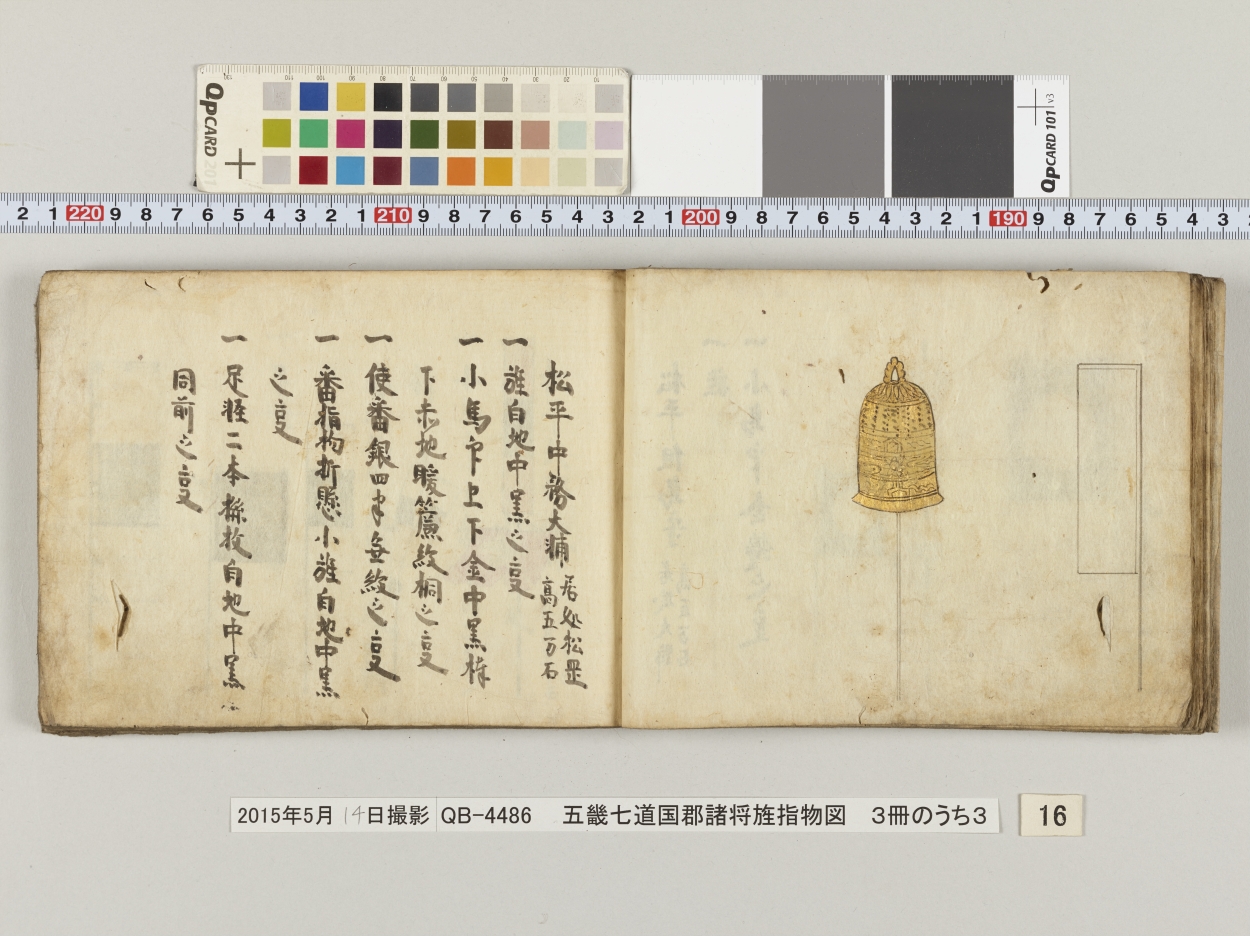 QPCARD 201
QPCARD 101 v3
2 1 220 9 8 7 6 5 4 3 2 1 210 9 8 7 6 5 4 3 2 1 200 9 8 7 6 5 4 3 2 1 190 9 8 7 6 5 4 3
松平中務大輔 居処松罡 高五万石
一 旌自地中黒之亥
一 小馬印上下金中黒
下赤地 簾紋桐之亥
一 使番銀四半無紋之亥
一 番指物折懸小旌自地中黒
之亥
一 足軽二本 自地中黒
同前之亥
2015年5月14日撮影 QB-4486 五畿七道国郡諸将旌指物図 3冊のうち3
16